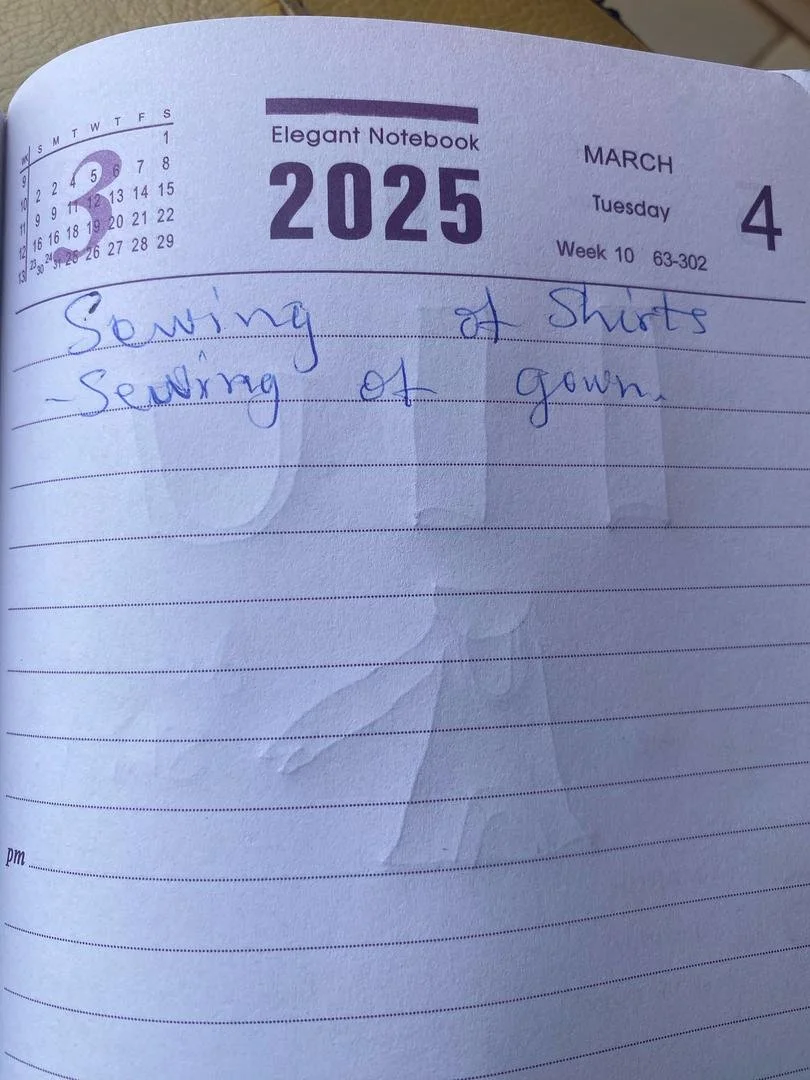 WK S M T W T F S
9 1
10 2 2 4 5 6 7 8
11 9 9 11 12 13 14 15
12 16 16 18 19 20 21 22
13 23 30 24 31 25 26 27 28 29
3
Elegant Notebook
2025
MARCH
Tuesday
4
Week 10 63-302
Sewing of Shirts
-Sewing of gown.
pm